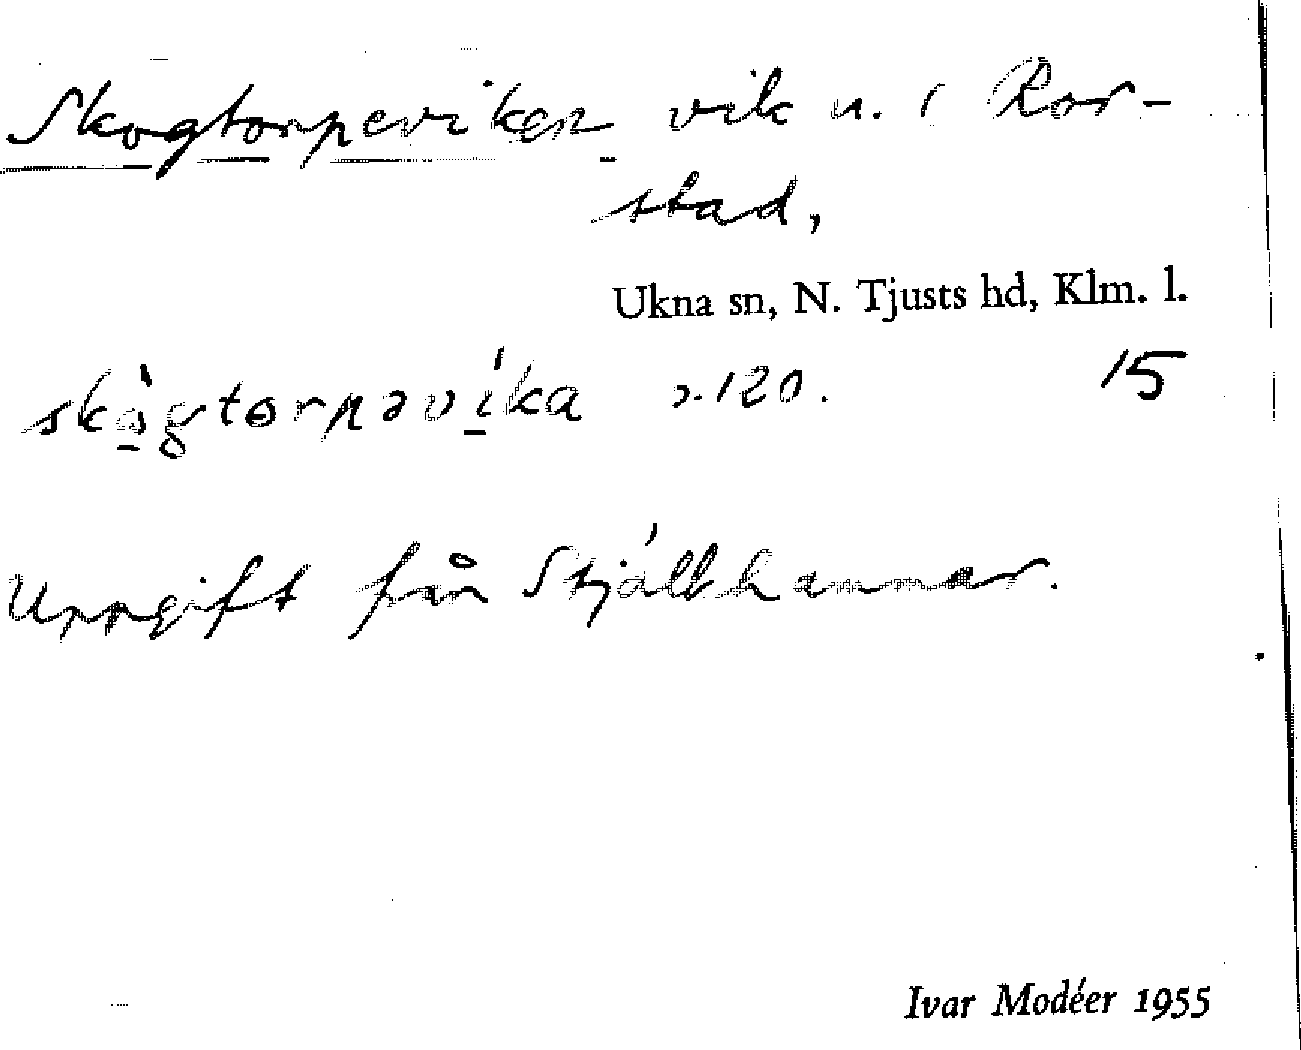 Skogtorpeviken vik n. i Ror-
stad,
Ukna sn, N. Tjusts hd, Klm. l.
skògtorpəvika 120. 15
Uppgift från
Ivar Modéer 1955